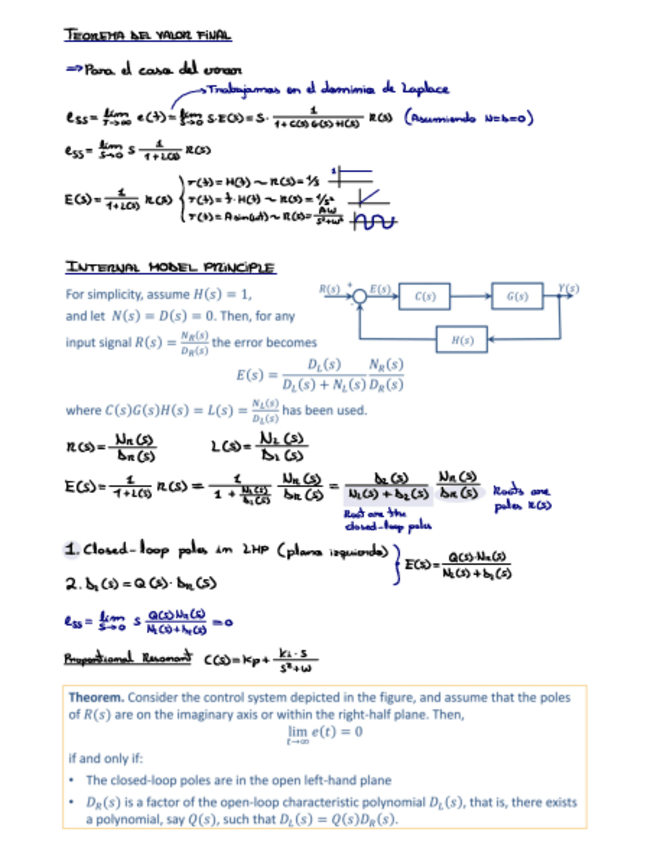 TEOREMA DEL VALOR FINAL
⇒ Para el caso del error
→ Trabajamos en el dominio de Laplace
e_ss = lim_{t→∞} e(t) = lim_{s→0} s·E(s) = s · 1/(1+C(s)G(s)H(s)) R(s) (Asumiendo N=D=0)
e_ss = lim_{s→0} s 1/(1+L(s)) R(s)
E(s) = 1/(1+L(s)) R(s)
r(t) = H(t) ~ R(s) = 1/s
r(t) = t·H(t) ~ R(s) = 1/s²
r(t) = A sin(ωt) ~ R(s) = Aω/(s²+ω²)
INTERNAL MODEL PRINCIPLE
For simplicity, assume H(s) = 1,
and let N(s) = D(s) = 0. Then, for any
input signal R(s) = N_R(s)/D_R(s) the error becomes
R(s) + E(s) C(s) G(s) Y(s)
H(s)
E(s) = D_L(s)/(D_L(s) + N_L(s)) N_R(s)/D_R(s)
where C(s)G(s)H(s) = L(s) = N_L(s)/D_L(s) has been used.
R(s) = N_R(s)/D_R(s) L(s) = N_L(s)/D_L(s)
E(s) = 1/(1+L(s)) R(s) = 1/(1 + N_L(s)/D_L(s)) N_R(s)/D_R(s) = D_L(s)/(N_L(s)+D_L(s)) N_R(s)/D_R(s) Roots are poles R(s)
Root are the
closed-loop poles
1. Closed-loop poles in LHP (plano izquierdo)
2. D_L(s) = Q(s)·D_R(s)
E(s) = Q(s)·N_R(s)/(N_L(s)+D_L(s))
e_ss = lim_{s→0} s Q(s)N_R(s)/(N_L(s)+D_L(s)) = 0
Proportional Resonant C(s) = Kp + Ki·s/(s²+ω)
Theorem. Consider the control system depicted in the figure, and assume that the poles
of R(s) are on the imaginary axis or within the right-half plane. Then,
lim_{t→∞} e(t) = 0
if and only if:
• The closed-loop poles are in the open left-hand plane
• D_R(s) is a factor of the open-loop characteristic polynomial D_L(s), that is, there exists
a polynomial, say Q(s), such that D_L(s) = Q(s)D_R(s).